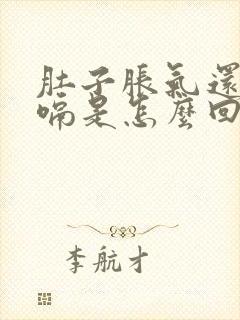 肚子脹氣還
嗝是怎麼回
李航才